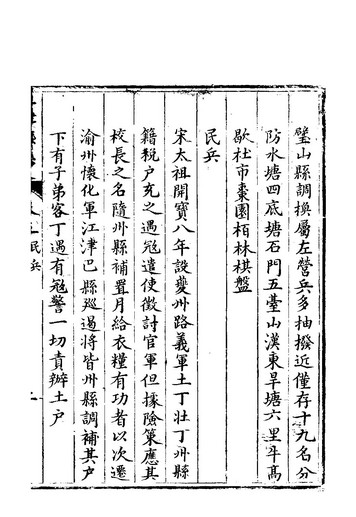 璧山縣調換屬左營兵多抽撥近僅存十九名分
防水塘四底塘石門五臺山漢東旱塘六里牛高
歇杜市棗園栢林棋盤
民兵
宋太祖開寶八年設夔州路義軍土丁壯丁州縣
籍稅户充之遇冦遣使徵討官軍但據險策應其
校長之名隨州縣補置月給衣糧有功者以次遷
渝州懷化軍江津巴縣巡遏將皆州縣調補其户
下有子弟客丁遇有冦警一切責辦土户
民兵